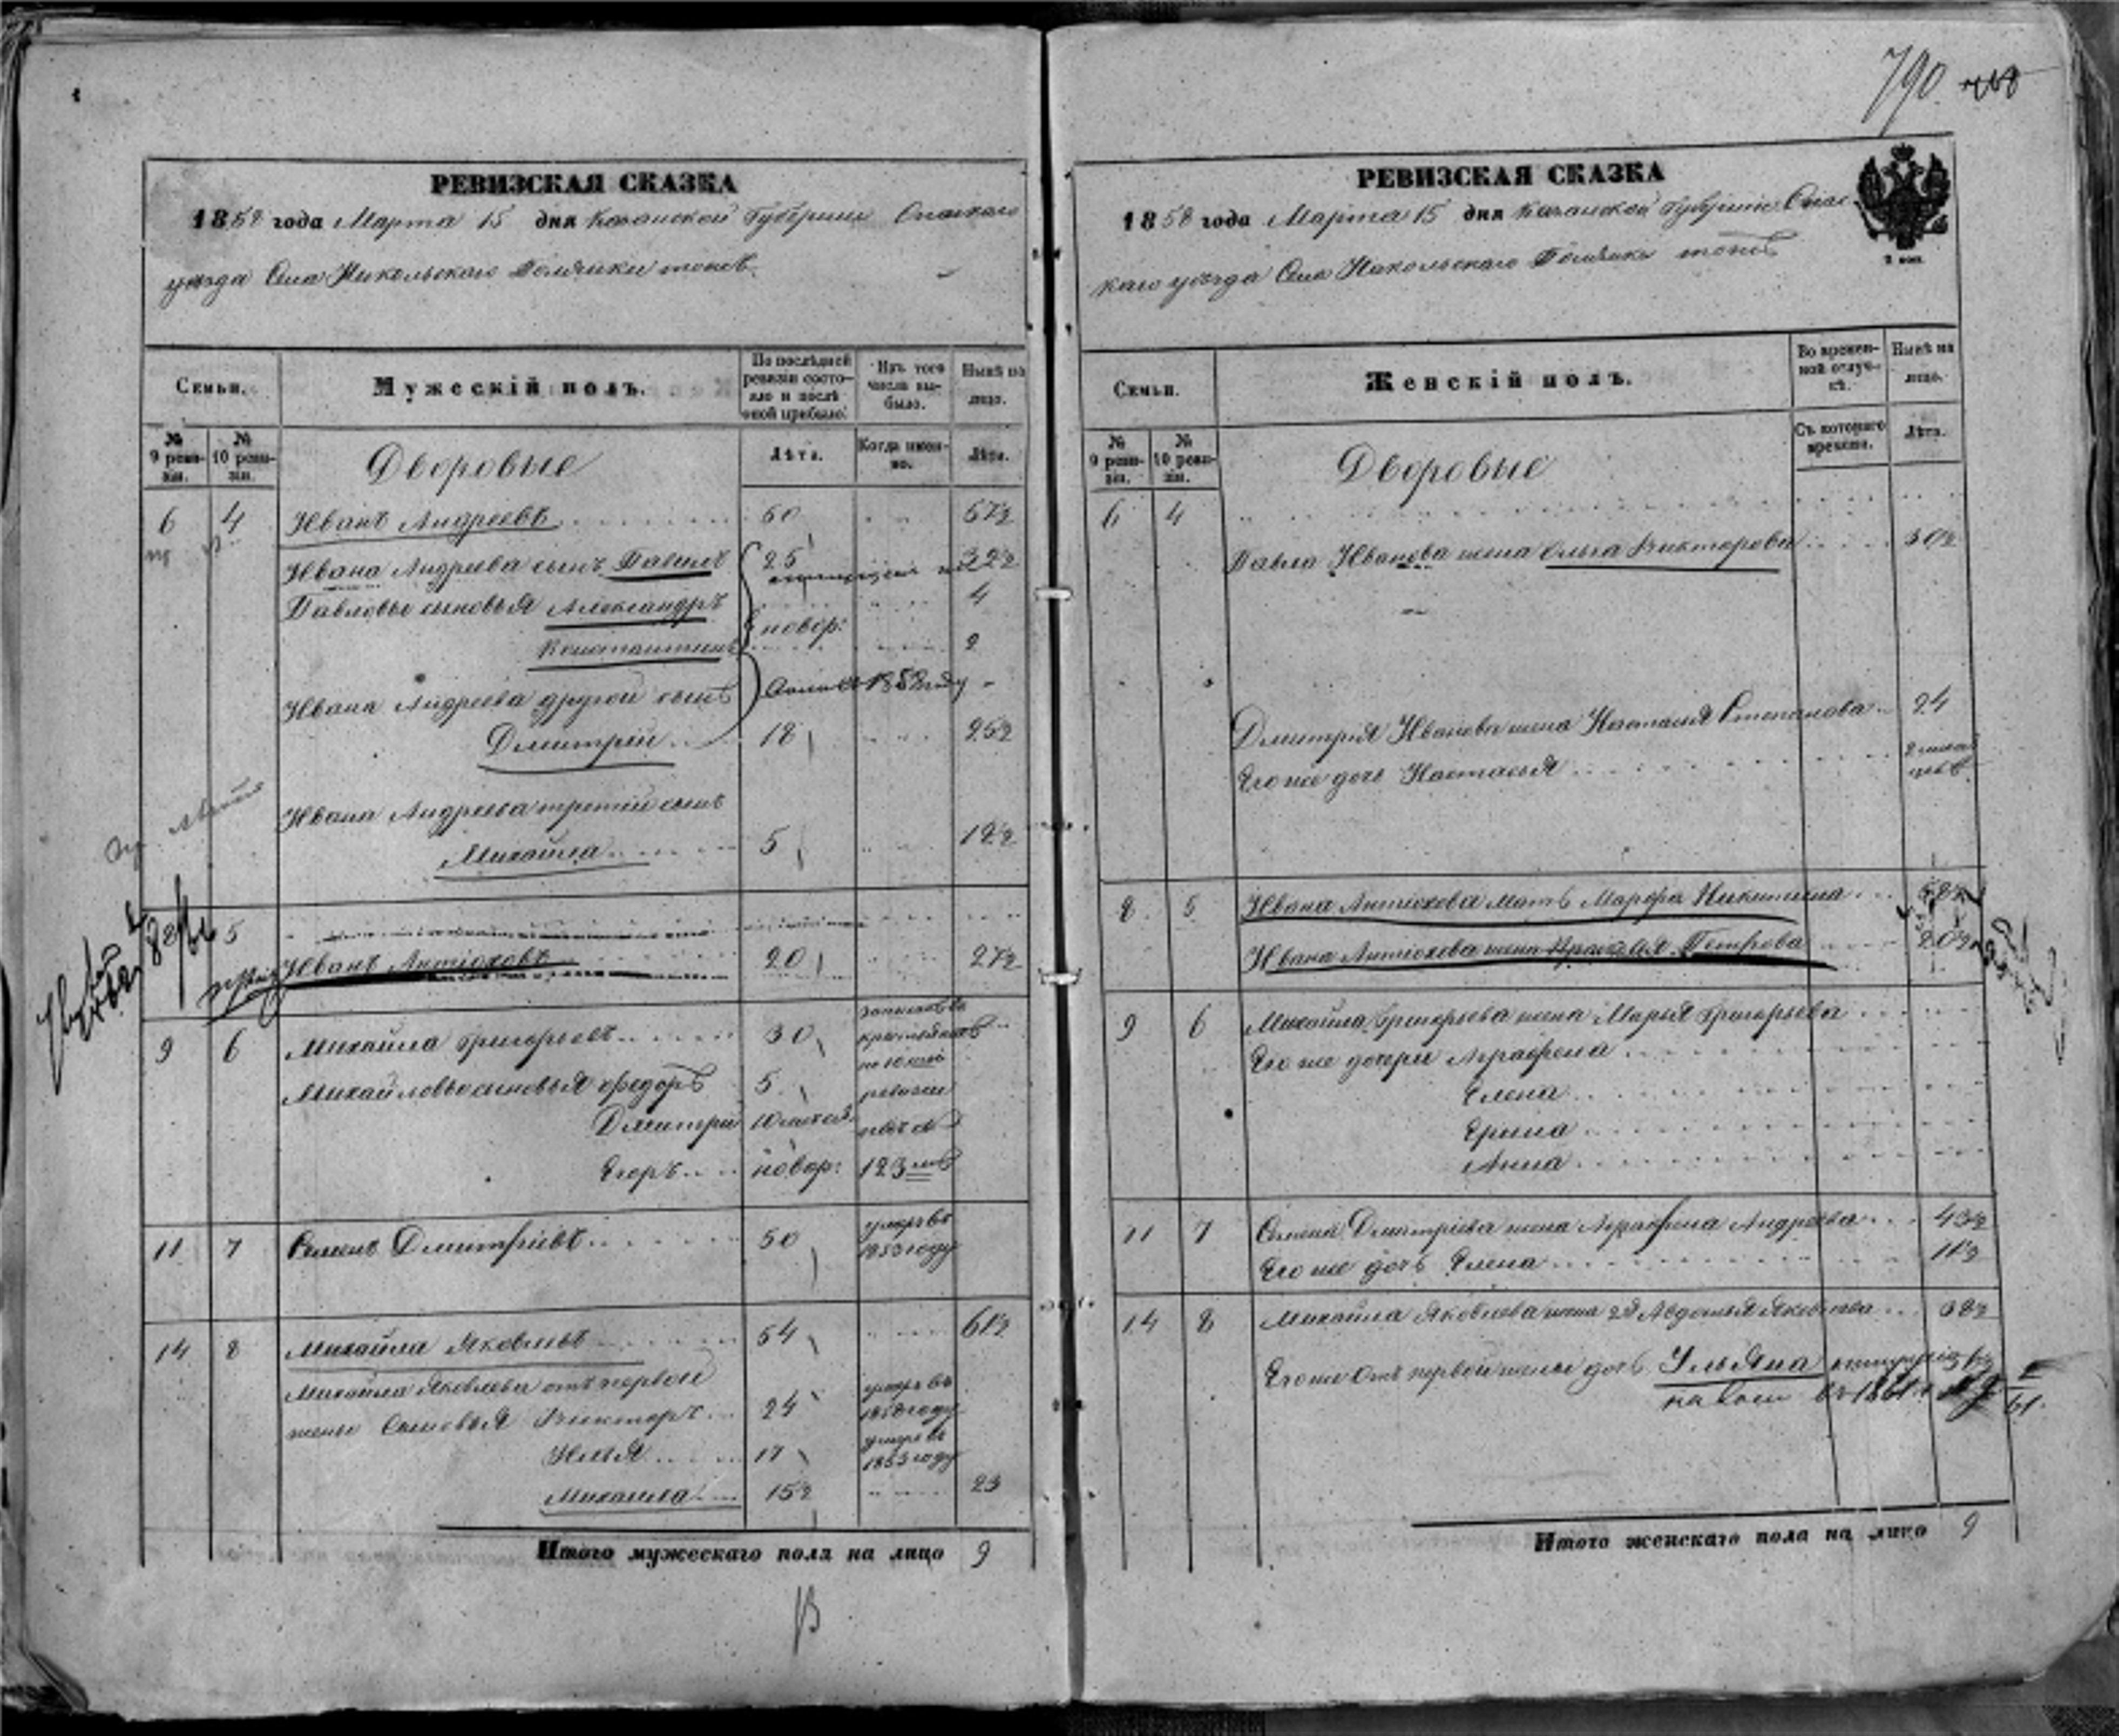 790
РЕВИЗСКАЯ СКАЗКА
1858 года Марта 15 дня Казанской Губернии Спаскаго
уѣзда Села Никольскаго тожъ
Семьи.
Мужескій полъ.
По послѣдней ревизіи состояло и послѣ оной прибыло.
Изъ того числа выбыло.
Нынѣ на лицо.
№ 9 ревизіи.
№ 10 ревизіи.
Дворовые
Лѣта.
Когда именно.
Лѣта.
6 4 Иванъ Андреевъ 50 57½
Ивана Андреева сынъ Павелъ 25 32½
Павловы сыновья Александръ 4
Константинъ новор: 2
Ивана Андреева другой сынъ
Дмитрій 18 25½
Ивана Андреева третій сынъ
Михайла 5 12½
8 5
Иванъ Антіоховъ 20 27½
9 6 Михайла Григорьевъ 30
Михайловы сыновья Федоръ 5 ревизіи
Дмитрій 10
Егоръ новор: 123
11 7 Семенъ Дмитріевъ 50 умеръ въ 1853 году
14 8 Михайла Яковлевъ 54 61½
Михайла Яковлева отъ первой
жены Сыновья Викторъ 24 умеръ въ году
Илья 17 умеръ въ 1853 году
Михаила 15½ 23
Итого мужескаго пола на лицо 9
РЕВИЗСКАЯ СКАЗКА
1858 года Марта 15 дня Казанской Губерніи Спас
каго уѣзда Села Никольскаго тожъ
2 коп.
Семьи.
Женскій полъ.
Во временной отлучкѣ.
Нынѣ на лицо.
№ 9 ревизіи.
№ 10 ревизіи.
Дворовые
Съ котораго времени.
Лѣта.
6 4
Павла Иванова жена Ольга Викторова 30½
Дмитрія Иванова жена Настасья Степанова 24
Его же дочь Настасья
8 5 Ивана Антіохова мать Марфа Никитина
Ивана Антіохова жена Петрова 20½
9 6 Михайла Григорьева жена Марья Григорьева
Его же дочери Аграфена
Елена
Ерина
Анна
11 7 Семена Дмитріева жена Аграфена Андреева 43½
Его же дочь Елена 11½
14 8 Михайла Яковлева жена 2я Авдотья Яковлева 38½
Его же отъ первой жены дочь Ульяна
въ 1861
Итого женскаго пола на лицо 9